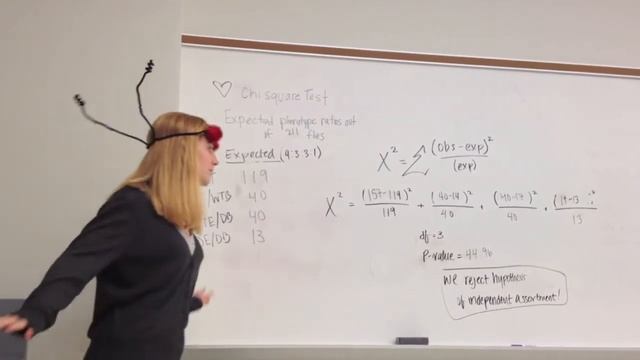 ♡ Chi square Test
Expected phenotypic ratios out
of 211 flies
Expected (9:3:3:1)
119
/WTB 40
TE/DB 40
E/DB 13
X² = Σ (obs-exp)² / (exp)
X² = (157-119)² / 119 + (40-14)² / 40 + (40-17)² / 40 + (19-13)² / 13
df = 3
P-value = 44.96
We reject hypothesis
of independent assortment!